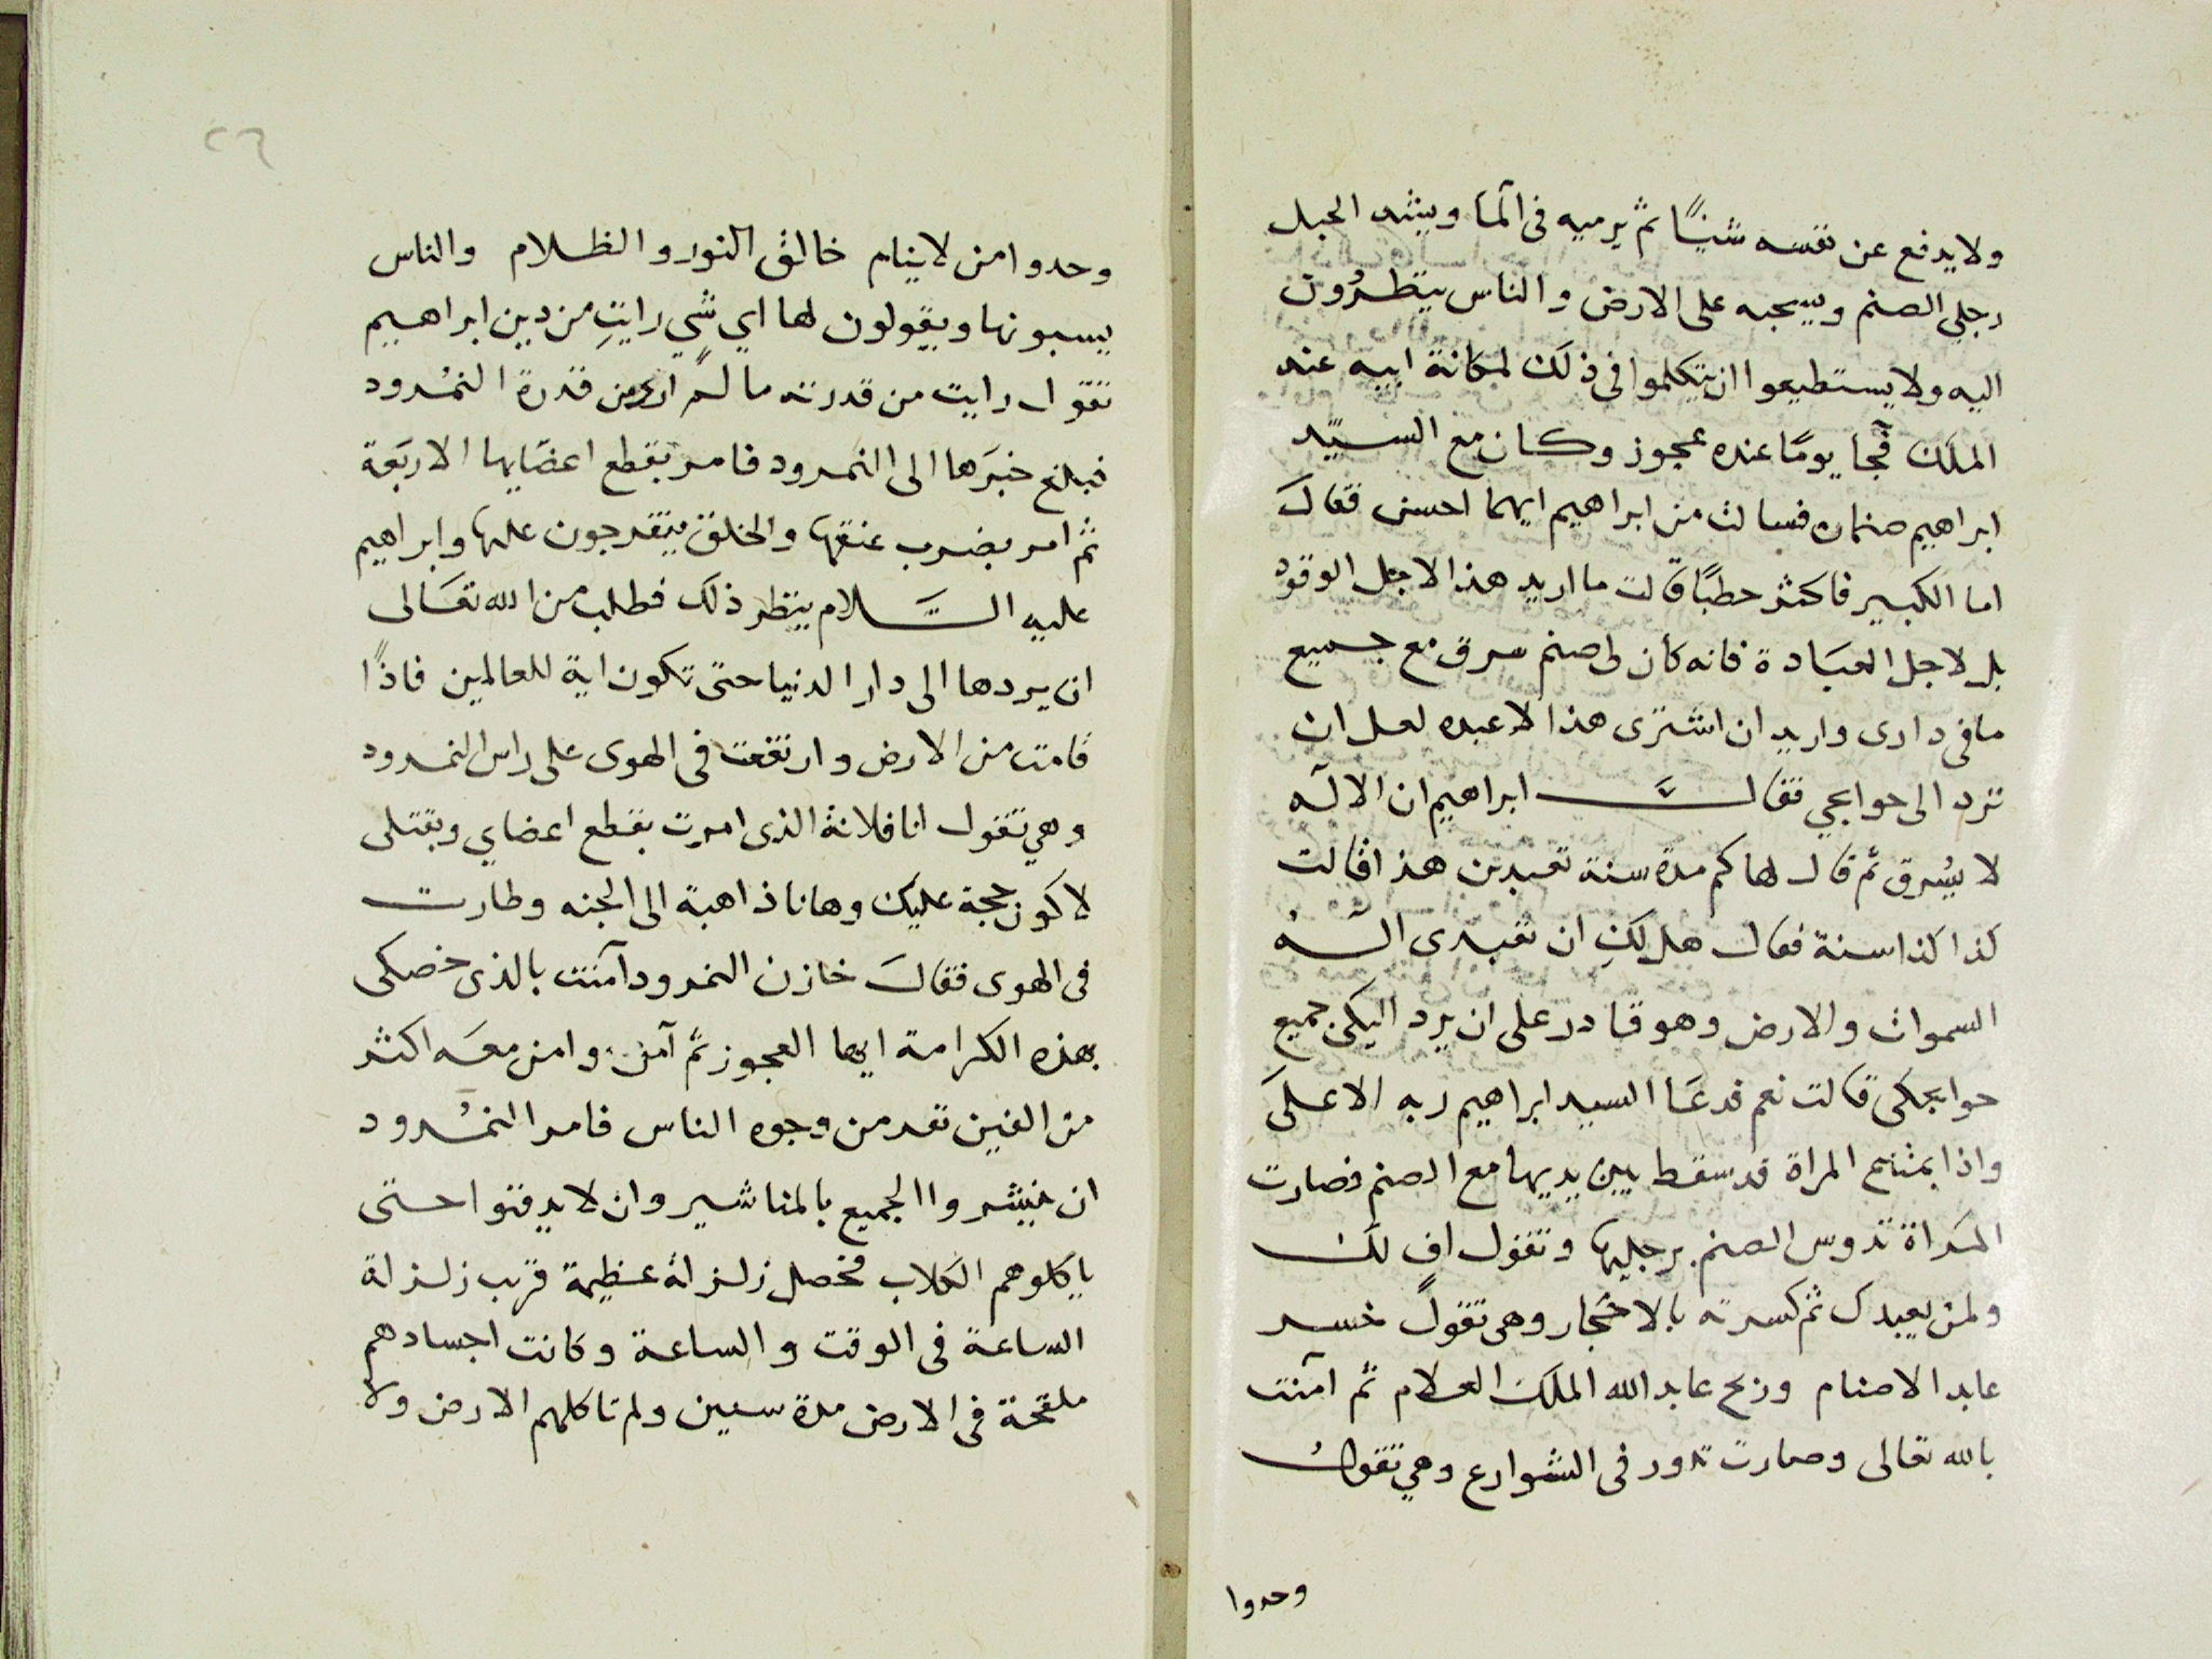 ولا يدفع عن نفسه شيئًا ثم يرميه فى المآ ويشد الحبل
رجلي الصنم ويسحبه على الارض والناس ينظرُون
اليه ولا يستطيعوا ان يتكلموا فى ذلك لمكانة ابيه عند
الملك فجآ يومًا عنده عجوز وكان مع السيّد
ابراهيم صنمان فسالت من ابراهيم ايهما احسن فقالَ
اما الكبير فاكثر حطبًا قالت ما اريد هذا لاجل الوقود
بل لاجل العبَادة فانه كان لى صنم سرق مع جميع
ما فى دارى واريد ان اشترى هذا لاعبده لعل ان
ترد الى حوايجي فقالَ ابراهيم ان الالٓه
لا يُسرق ثم قال لها كم مدة سنة تعبدين هذا قالت
كذا كذا سنة فقال هل لكِ ان تعبدى الٓهُ
السموات والارض وهو قادر على ان يرد اليكى جميع
حوايجكى قالت نعم فدعَا السيد ابراهيم ربه الاعلىَ
واذا بمتاع المراة قد سقط بين يديها مع الصنم فصارت
المَراة تدوس الصنم برجليها وتقول اف لك
ولمن يعبدك ثم كسرته بالاحْجار وهى تقول خسر
عابد الاصنام وربح عابد الله الملك العلام ثم آمنت
بالله تعالى وصارت تدور فى الشوارع وهي تقولُ
وحدوا
٢٦
وحدوا من لا ينام خالق النور والظلام والناس
يسبونها ويقولون لها اي شي رايتِ من دين ابراهيم
تقول رايت من قدرته ما لم ارى من قدرة النمْرود
فبلغ خبَرَها الى النمرود فامر بقطع اعضَايها الاربَعة
ثم امر بضرب عنقها والخلق يتفرجون عليها وابراهيم
عليه السَّلام ينظر ذلك فطلب من الله تعَالى
ان يردها الى دار الدنيا حتى تكون اية للعالمين فاذًا
قامت من الارض وارتفعت فى الهوى على راس النمرود
وهي تقول انا فلانة الذى امرت بقطع اعضاي وبقتلى
لاكون حجة عليك وهانا ذاهبة الى الجنه وطارت
فى الهوى فقالَ خازن النمرود آمنت بالذى خصكى
بهذه الكرامة ايها العجوز ثم آمن وامن معَه اكثر
من الفين نفر من وجوه الناس فامر النمْرود
ان ينشروا الجميع بالمناشير وان لا يدفنوا حتى
ياكلوهم الكلاب فحصل زلزلة عظيمة قرب زلزلة
الساعة فى الوقت والساعة وكانت اجسادهم
ملقحة فى الارض مدة سنين ولم تاكلهم الارض ولا